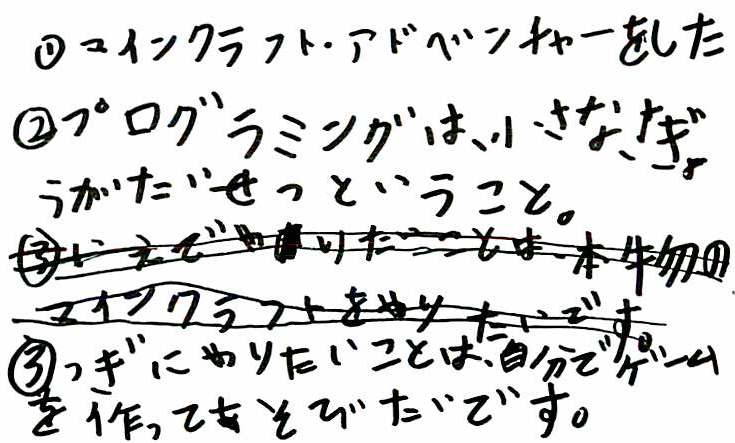 ①マインクラフト・アドベンチャーをした
②プログラミングは、小さなさぎょ
うがたいせつということ。
③いえでやりたいことは、本物の
マインクラフトをやりたいです。
③つぎにやりたいことは、自分でゲーム
を作ってあそびたいです。